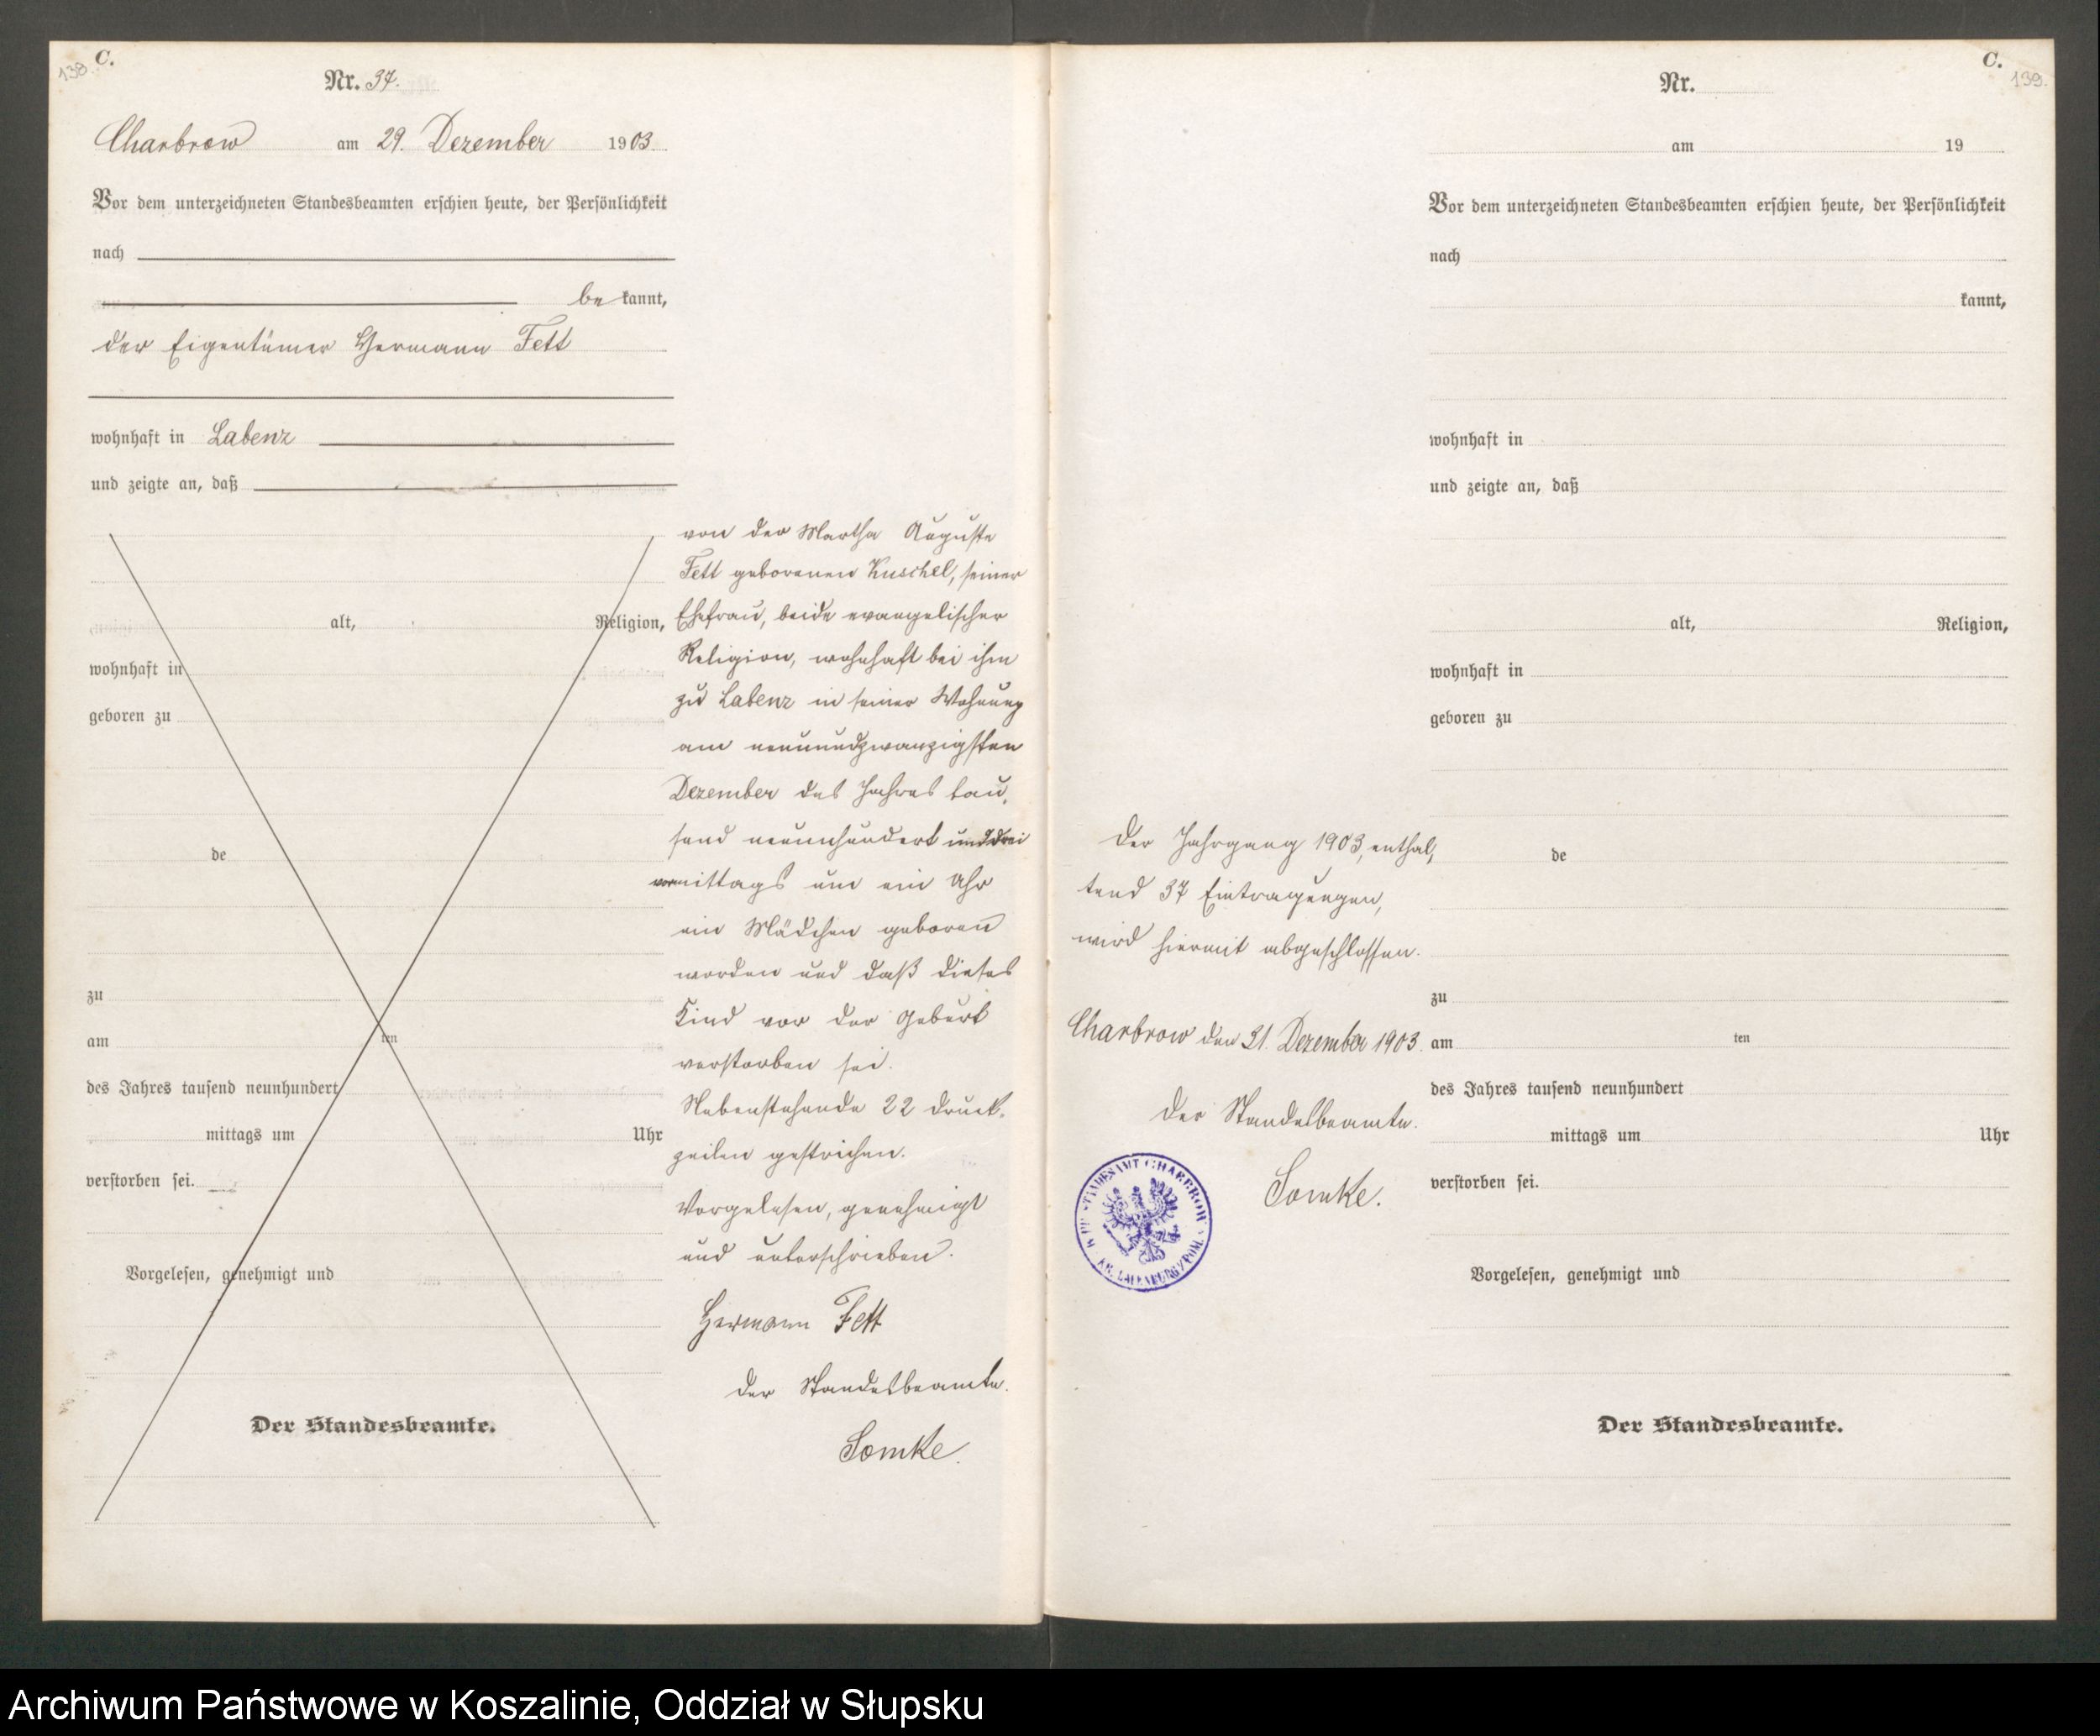 138
C.
Nr. 37.
Charbrow am 29. Dezember 1903
Vor dem unterzeichneten Standesbeamten erschien heute, der Persönlichkeit
nach
be kannt,
der Eigentümer Hermann Fett
wohnhaft in Labenz
und zeigte an, daß
alt, Religion,
wohnhaft in
geboren zu
de
zu
am ten
des Jahres tausend neunhundert
mittags um Uhr
verstorben sei.
Vorgelesen, genehmigt und
Der Standesbeamte.
von der Martha Auguste
Fett geborenen Kuschel, seiner
Ehefrau, beide evangelischer
Religion, wohnhaft bei ihm
zu Labenz in seiner Wohnung
am neunundzwanzigsten
Dezember des Jahres tau-
send neunhundert und drei
vormittags um ein Uhr
ein Mädchen geboren
worden und daß dieses
Kind vor der Geburt
verstorben sei.
Nebenstehende 22 Druck-
zeilen gestrichen.
Vorgelesen, genehmigt
und unterschrieben.
Hermann Fett
Der Standesbeamte.
Somke.
C.
139.
Nr.
am 19
Vor dem unterzeichneten Standesbeamten erschien heute, der Persönlichkeit
nach
kannt,
wohnhaft in
und zeigte an, daß
alt, Religion,
wohnhaft in
geboren zu
de
zu
am ten
des Jahres tausend neunhundert
mittags um Uhr
verstorben sei.
Vorgelesen, genehmigt und
Der Standesbeamte.
Der Jahrgang 1903, enthal-
tend 37 Eintragungen,
wird hiermit abgeschlossen.
Charbrow den 31. Dezember 1903.
Der Standesbeamte.
Somke.
STANDESAMT CHARBROW
KR. LAUENBURG/POM.
Archiwum Państwowe w Koszalinie, Oddział w Słupsku